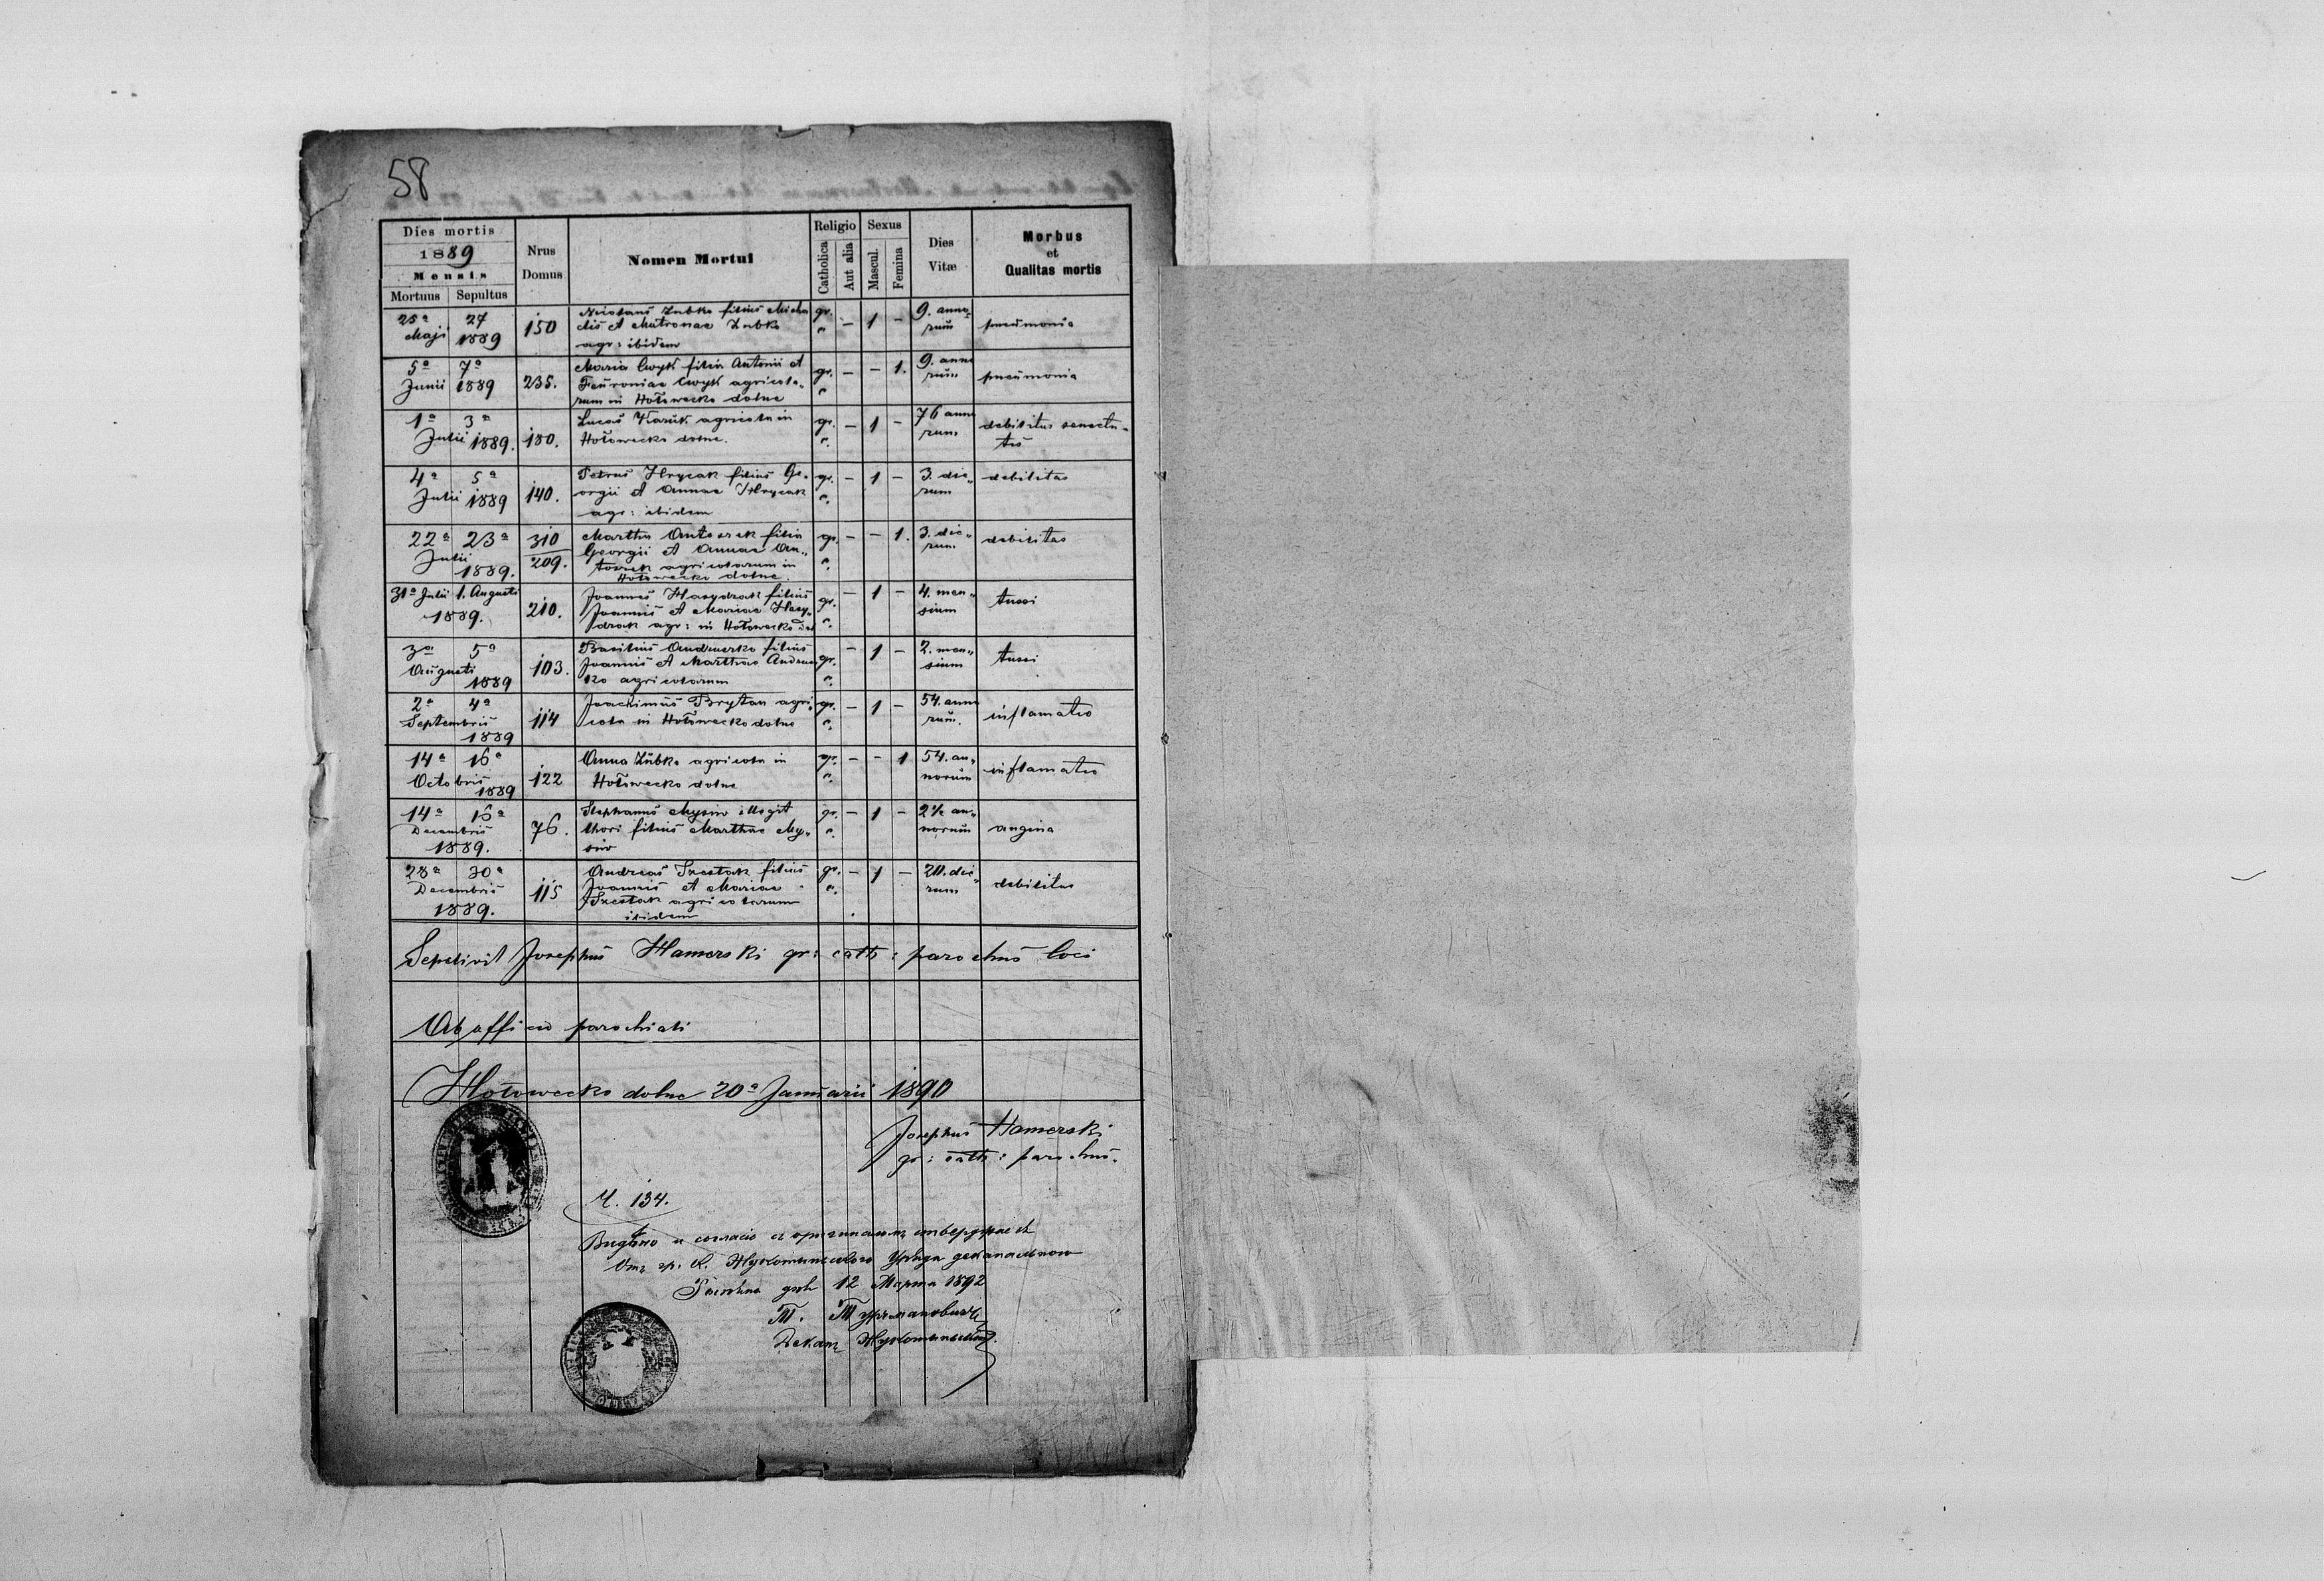 58
Dies mortis
1889
Mensis
Mortuus Sepultus
Nrus
Domus
Nomen Mortui
Religio
Catholica
Aut alia
Sexus
Mascul.
Femina
Dies
Vitæ
Morbus
et
Qualitas mortis
25ª 27
Maji 1889
150
Nicolaus Zubko filius Micha
elis et Matronae Zubko
agr: ibidem
gr.
c
– 1 –
9. anno„
rum
pneumonia
5ª 7ª
Junii 1889
235.
Maria Cwyk filia Antonii et
Feuroniae Cwyk agricola„
rum in Hołowecko dolne
gr.
c
– – 1.
9. anno
rum
pneumonia
1ª 3ª
Julii 1889.
180.
Lucas agricola in
Hołowecko dolne.
gr.
c.
– 1 –
76 anno
rum
debilitas senectu„
tis
4ª 5ª
Julii 1889
140.
Petrus Hrycak filius Ge„
orgii et Annae Hrycak
agr: ibidem
gr.
c.
– 1 –
3. die„
rum
debilitas
22ª 23ª
Julii
1889.
310
209.
Martha Antosrek filia
Georgii et Annae An„
agricolarum in
Hołowecko dolne.
gr.
c.
– – 1.
3. die„
rum
debilitas
31ª Julii 1. Augusti
1889.
210.
Joannes Hasydrak filius
Joannis et Mariae Hasy„
drak agr: in Hołowecko
gr.
c.
– 1 –
4. men„
sium
tussi
3ª 5ª
Augusti
1889
103.
Basilius filius
Joannis et Marthae
ko agricolarum
gr.
c.
– 1 –
2. men„
sium
tussi
2ª 4ª
Septembris
1889
114
Joachimus Brytan agri„
cola in Hołowecko dolne
gr.
c.
– 1 –
54. anno
rum.
inflamatio
14ª 16ª
Octobris
1889
122
Anna Zubko agricola in
Hołowecko dolne
gr.
c.
– – 1
54. an„
norum
inflamatio
14ª 16ª
Decembris
1889.
76.
Stephanus Mysiw illegit
thori filius Marthae My„
siw
gr.
c.
– 1 –
2½ an„
norum
angina
28ª 30ª
Decembris
1889.
115
Andreas filius
Joannis et Mariae
agricolarum
ibidem
gr.
c.
– 1 –
20. die„
rum
debilitas
Sepelivit Josephus Hamerski gr: cath: parochus loci
Ab officio parochiali
Hołowecko dolne 20ª Januarii 1890
Josephus Hamerski
gr: cath: parochus.
Ч. 134.
и согласіе съ оригиналомъ
Отъ гр. к. деканального
дня 12 Марта 1892
Деканъ